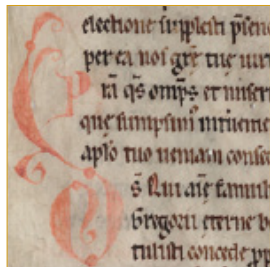 electione supplesti p̄senc
per ea nos gr̄e tue uirt
Pr̄a qs̄ omp̄s et miseri
que sumpsim᷒ intuente
ap̄lo tuo ueniam conse
Ds̄ Qui aīe famuli
Gregorii eterne b
tulisti concede pp